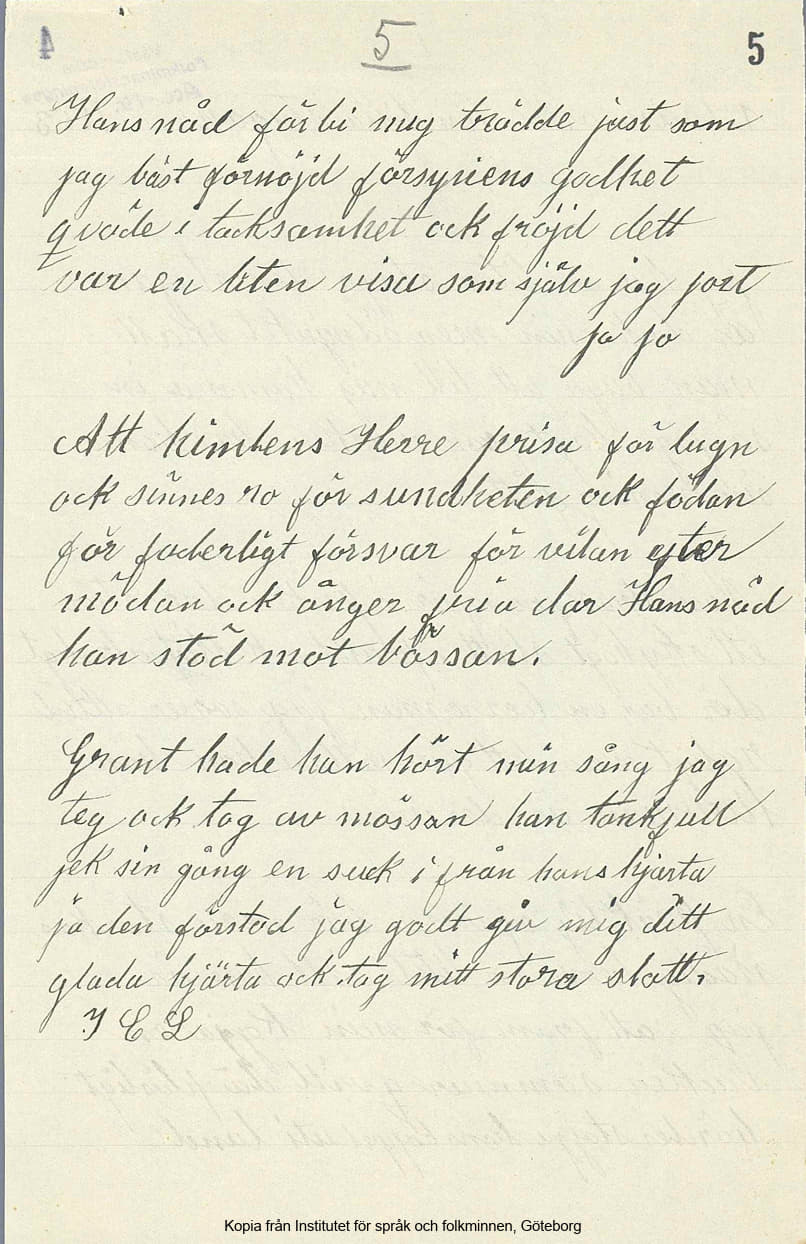 4 5 5
Hans nåd förbi mig trädde just som
jag bäst förnöjd försynens godhet
qväde i tacksamhet ock fröjd dett
var en liten visa som själv jag jort
ja jo
Att himlens Herre prisa för lugn
ock sinnes ro för sundheten ock födan
för faderligt försvar för vilan efter
mödan ock ånger fria dar Hans nåd
han stod mot bössan.
Grant hade han hört min sång jag
teg ock tog av mössan han tankfull
jek sin gång en suck i från hans hjärta
ja den förstod jag godt giv mig ditt
glada hjärta ock tag mitt stora slott.
J E L
Kopia från Institutet för språk och folkminnen, Göteborg